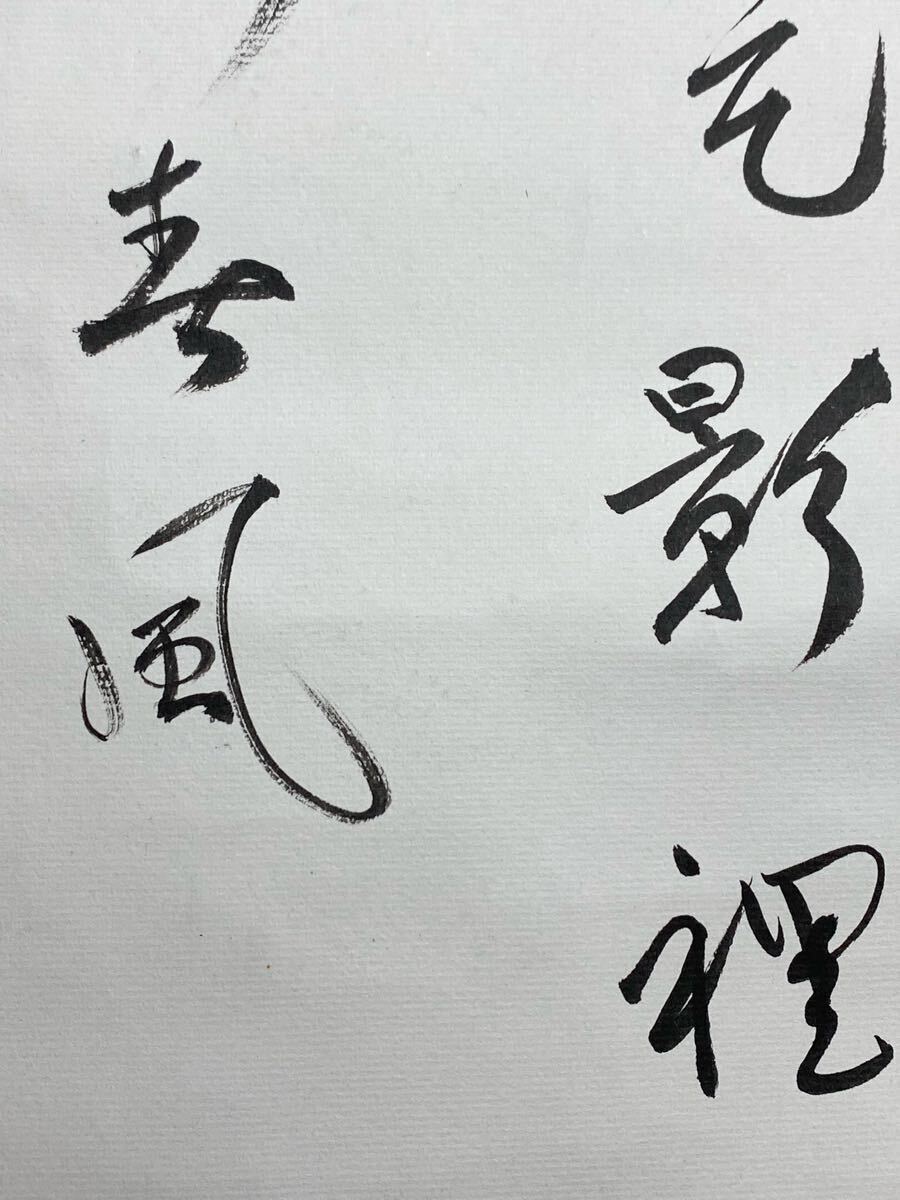 影裡
春風